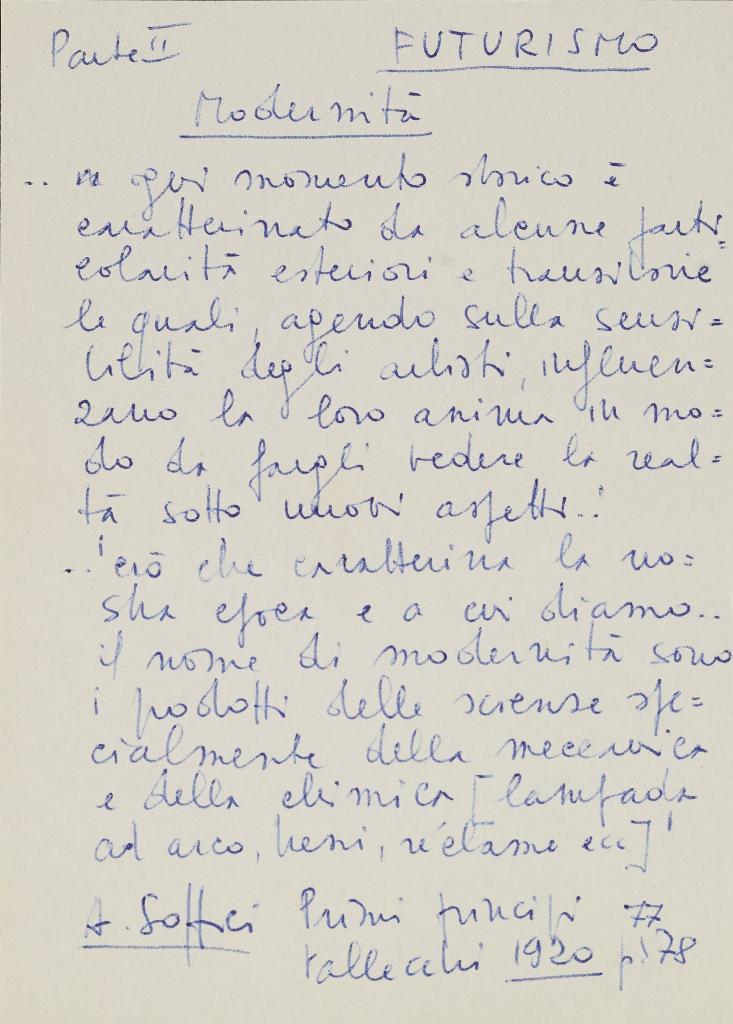 Parte II FUTURISMO
Modernità
.. ogni momento storico è
caratterizzato da alcune parti=
colarità esteriori e transitorie
le quali, agendo sulla sensi=
bilità degli artisti, influen=
zano la loro anima in mo=
do da fargli vedere la real=
tà sotto nuovi aspetti..'
..'ciò che caratterizza la no=
stra epoca e a cui diamo..
il nome di modernità sono
i prodotti delle scienze spe=
cialmente della meccanica
e della chimica [lampada
ad arco, treni, réclame ecc]'
A. Soffici Primi principi 77
Vallecchi 1920 p. 78